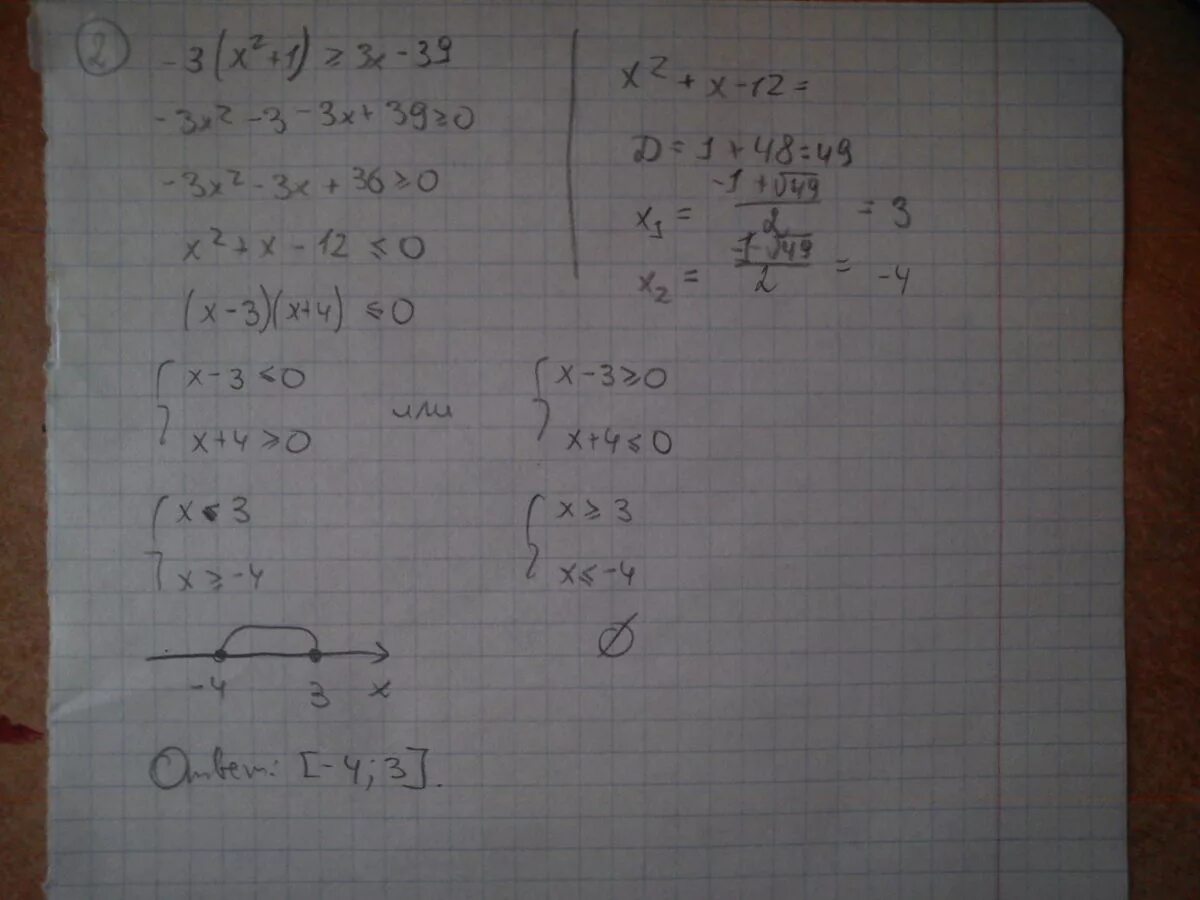 2
-3(x²+1) ≥ 3x-39
-3x² -3 -3x+39≥0
-3x² -3x + 36 ≥0
x² + x - 12 ≤ 0
(x-3)(x+4) ≤0
x² + x-12=
D = 1 + 48=49
x₁ = (-1+√49)/2 = 3
x₂ = (-1-√49)/2 = -4
{ x-3 ≤0
x+4 ≥0
или
{ x-3≥0
x+4≤0
{ x ≤ 3
x ≥ -4
{ x ≥ 3
x ≤ -4
-4 3 x
∅
Ответ: [-4; 3].